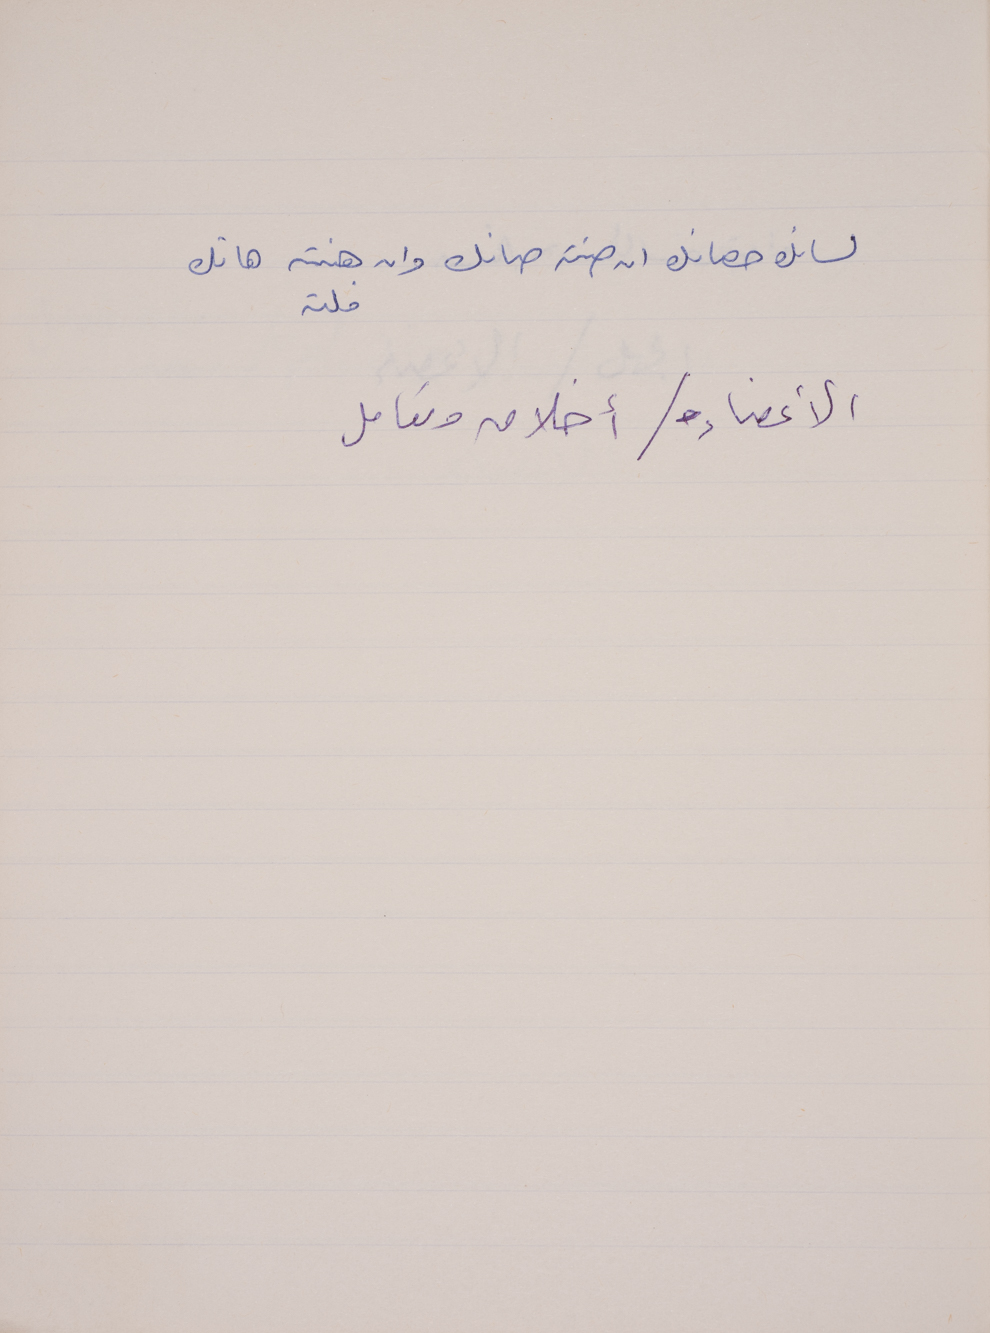 لسانك حصانك ان صنته صانك وان هنته هانك
خلته
الأعضاء / أخلاق وتعامل